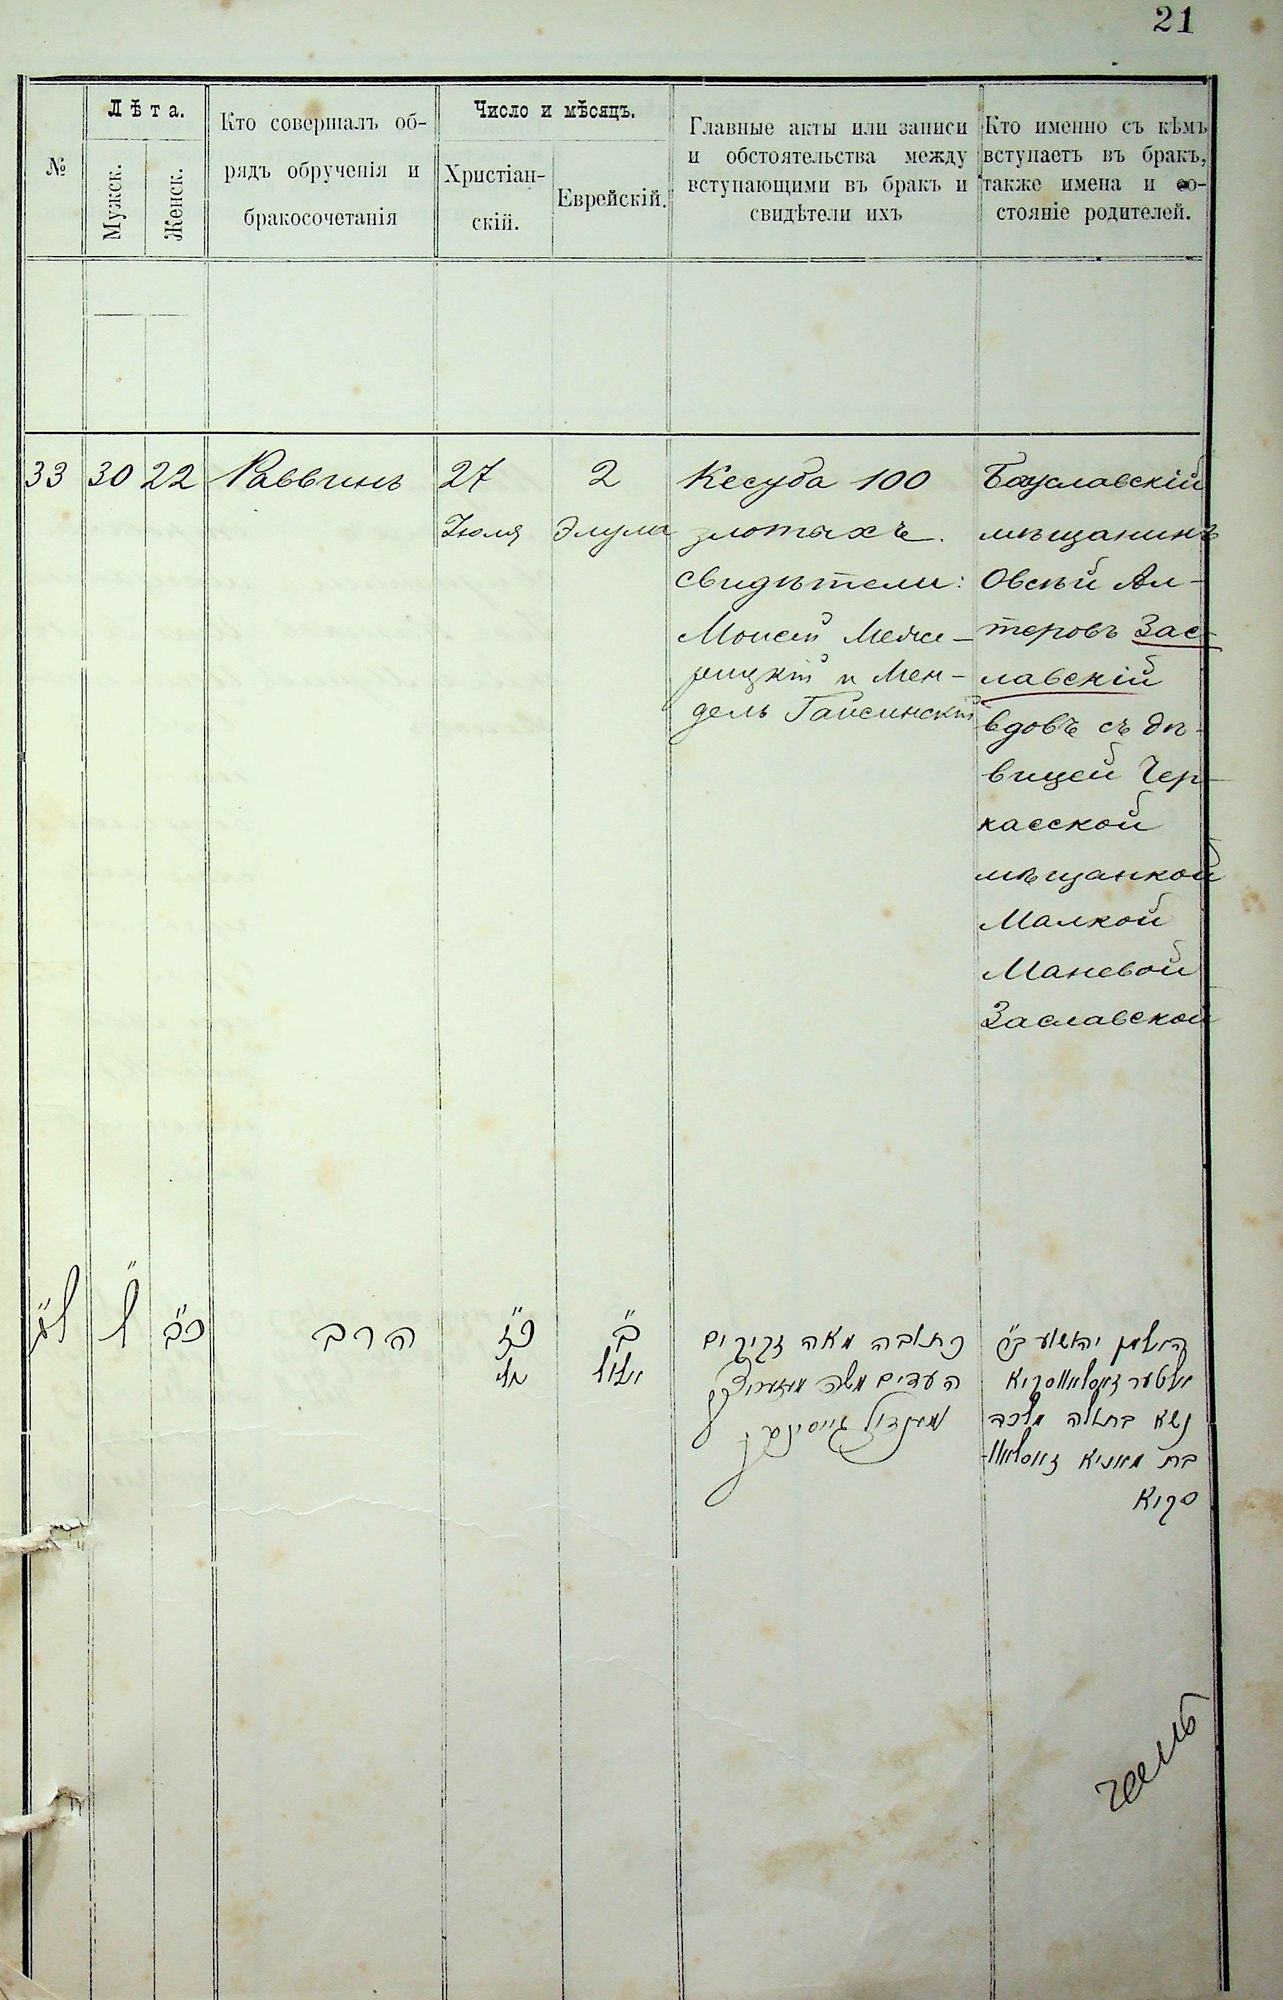 21
№
Лѣта.
Мужск.
Женск.
Кто совершалъ об-
рядъ обрученія и
бракосочетанія
Число и мѣсяцъ.
Христіан-
скій.
Еврейскій.
Главные акты или записи
и обстоятельства между
вступающими въ бракъ и
свидѣтели ихъ
Кто именно съ кѣмъ
вступаетъ въ бракъ,
также имена и со-
стояніе родителей.
33
30
22
Раввинъ
27
Іюля
2
Элула
Кесуба 100
злотыхъ.
свидѣтели:
Моисей Меже-
рицкій и Мен-
дель Гайсинскій
Богуславскій
мѣщанинъ
Овсѣй Ал-
теровъ Зас-
лавскій
вдовъ съ дѣ-
вицей Чер-
касской
мѣщанкой
Малкой
Маневой
Заславской
ל״ג
ל״
כ״ב
הרב
כ״ז
יולי
ב״
אלול
כתובה מאה זקוקים
העדים משה מעזעריצקי
מענדיל גייסינסקי
האלמן יהושע ב״ר
אלטער זאסלאווסקיא
נשא בתולה מלכה
בת מאניא זאסלאוו-
סקיא